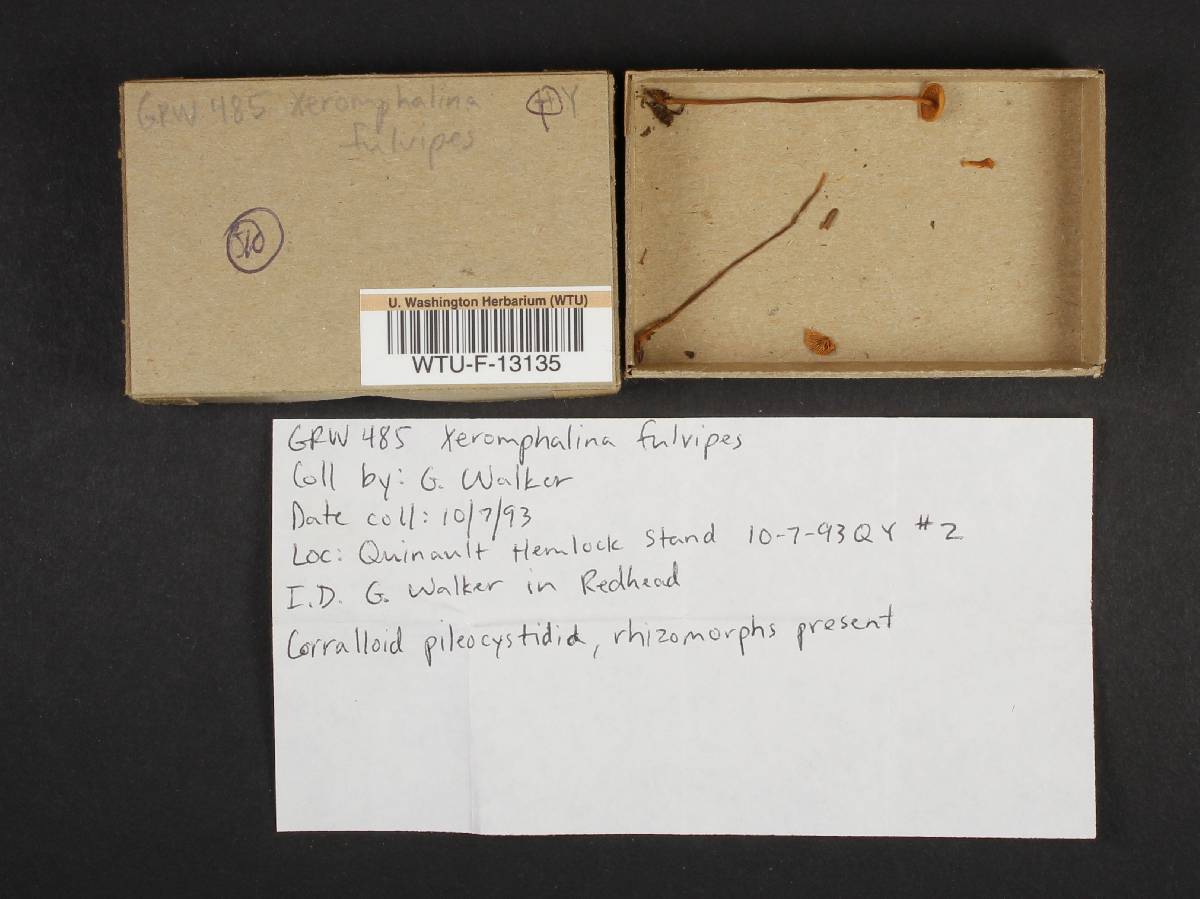 GRW 485 Xeromphalina Y
fulvipes
510
U. Washington Herbarium (WTU)
WTU-F-13135
GRW 485 Xeromphalina fulvipes
Coll by: G. Walker
Date coll: 10/7/93
Loc: Quinault Hemlock Stand 10-7-93 QY #2
I.D. G. Walker in Redhead
Corralloid pileocystidia, rhizomorphs present